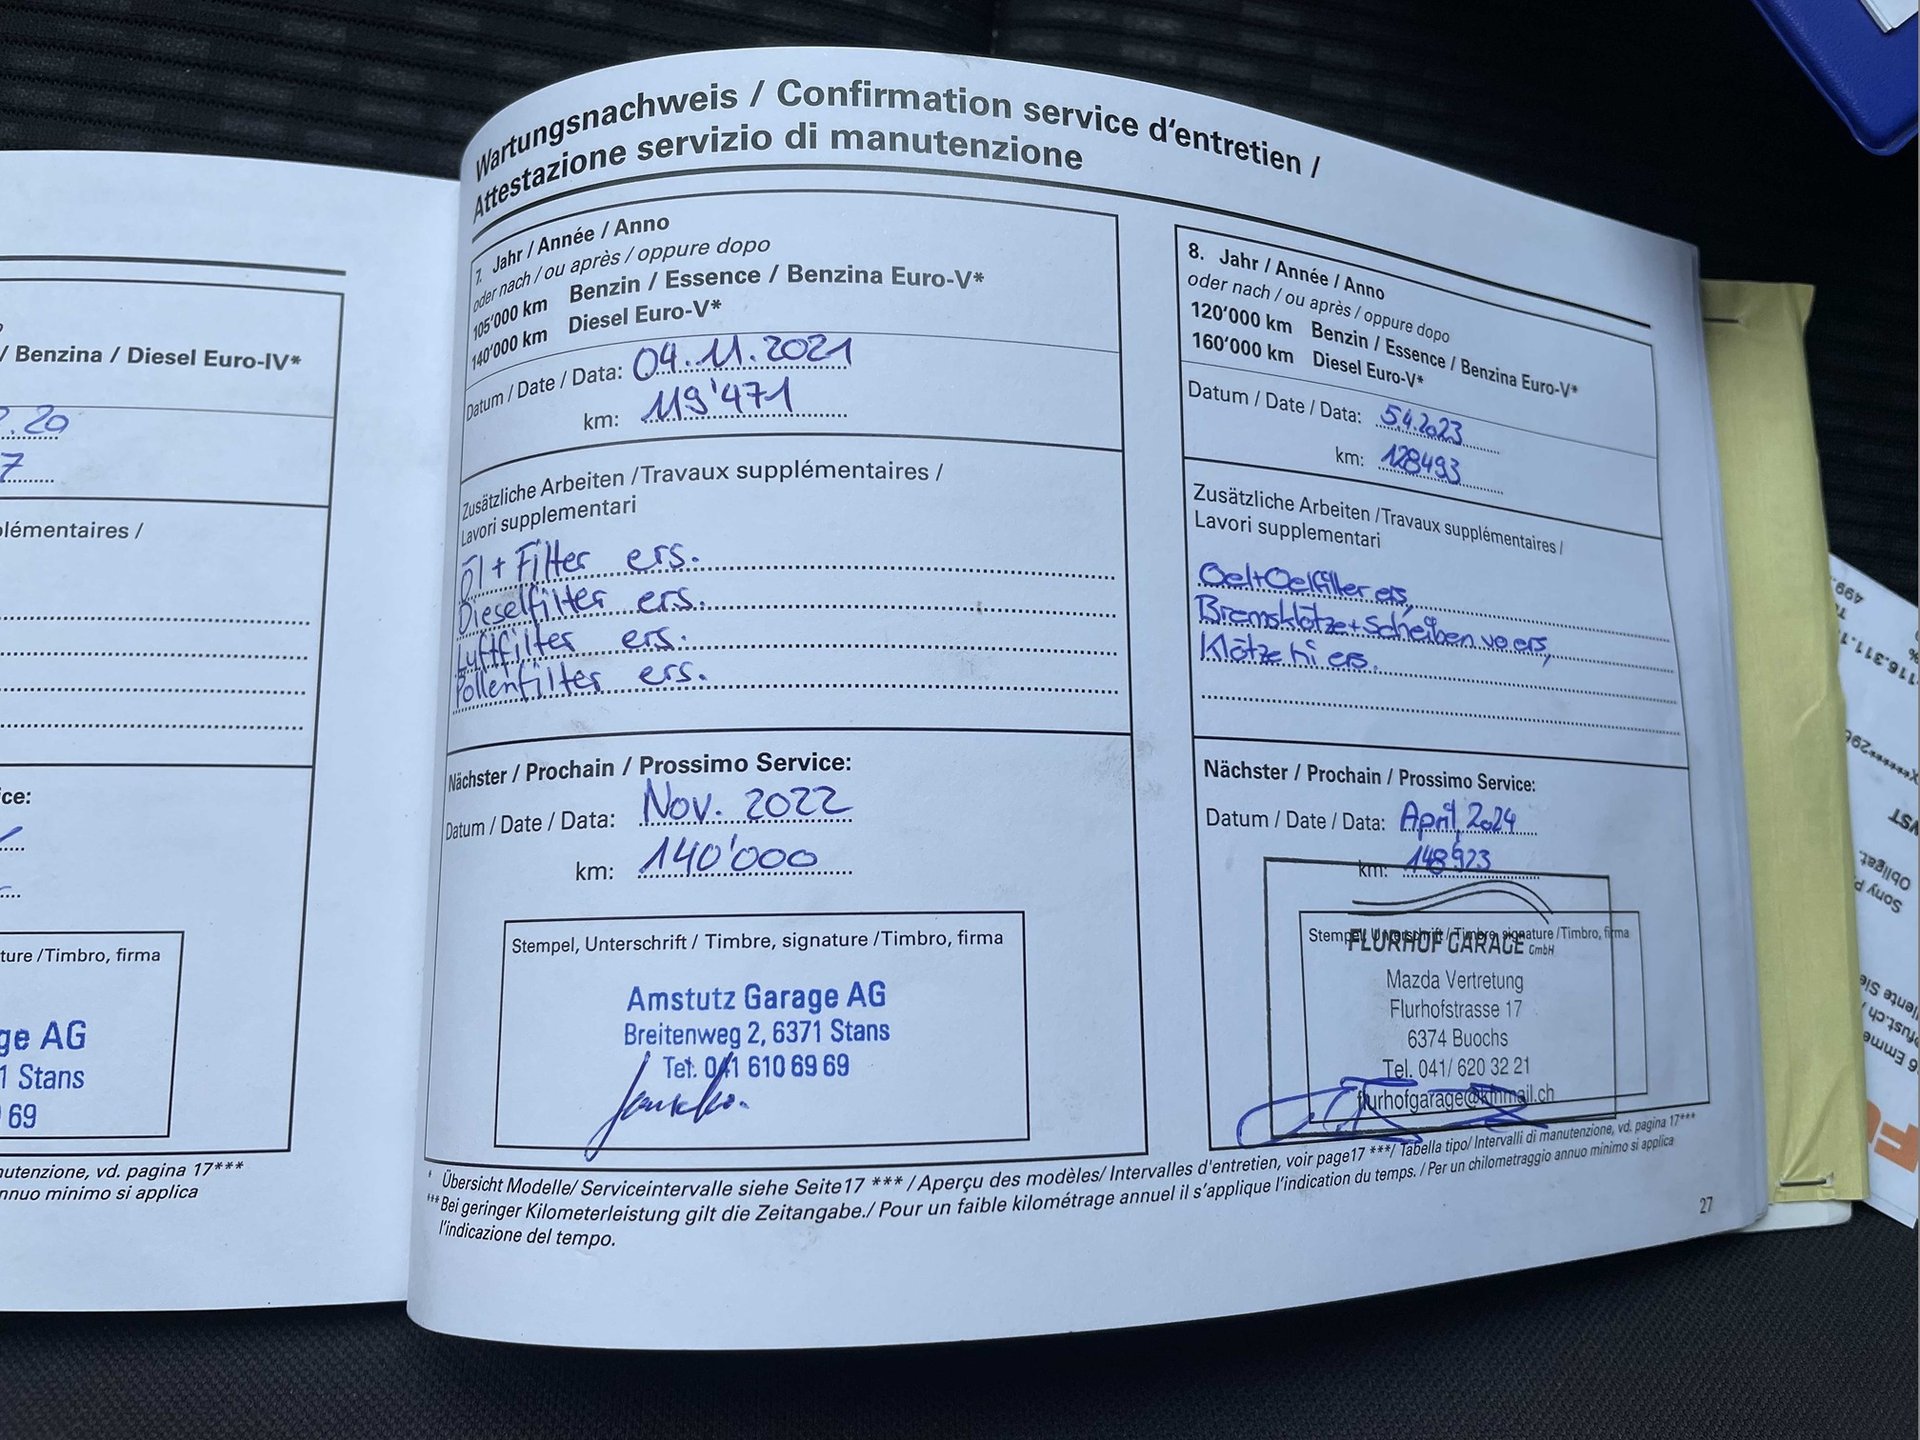 / Benzina / Diesel Euro-IV*
.20
7
plémentaires /
ice:
ture /Timbro, firma
ge AG
1 Stans
69
nutenzione, vd. pagina 17***
nnuo minimo si applica
Wartungsnachweis / Confirmation service d'entretien /
Attestazione servizio di manutenzione
7. Jahr / Année / Anno
oder nach / ou après / oppure dopo
105'000 km Benzin / Essence / Benzina Euro-V*
140'000 km Diesel Euro-V*
Datum / Date / Data: 04.11.2021
km: 119'471
Zusätzliche Arbeiten /Travaux supplémentaires /
Lavori supplementari
Öl + Filter ers.
Dieselfilter ers.
Luftfilter ers.
Pollenfilter ers.
Nächster / Prochain / Prossimo Service:
Datum / Date / Data: Nov. 2022
km: 140'000
Stempel, Unterschrift / Timbre, signature /Timbro, firma
Amstutz Garage AG
Breitenweg 2, 6371 Stans
Tel. 041 610 69 69
8. Jahr / Année / Anno
oder nach / ou après / oppure dopo
120'000 km Benzin / Essence / Benzina Euro-V*
160'000 km Diesel Euro-V*
Datum / Date / Data: 5.4.2023
km: 128493
Zusätzliche Arbeiten /Travaux supplémentaires /
Lavori supplementari
Oel+Oelfilter ers,
Bremsklötze+Scheiben vo ers,
Klötze hi ers.
Nächster / Prochain / Prossimo Service:
Datum / Date / Data: April 2024
km: 148923
Stempel, Unterschrift / Timbre, signature /Timbro, firma
FLURHOF GARAGE GmbH
Mazda Vertretung
Flurhofstrasse 17
6374 Buochs
Tel. 041/ 620 32 21
flurhofgarage@kfnmail.ch
* Übersicht Modelle/ Serviceintervalle siehe Seite17 *** / Aperçu des modèles/ Intervalles d'entretien, voir page17 ***/ Tabella tipo/ Intervalli di manutenzione, vd. pagina 17***
*** Bei geringer Kilometerleistung gilt die Zeitangabe./ Pour un faible kilométrage annuel il s'applique l'indication du temps. / Per un chilometraggio annuo minimo si applica
l'indicazione del tempo.
27
499.
116.311.1
Obligat.
Sony P